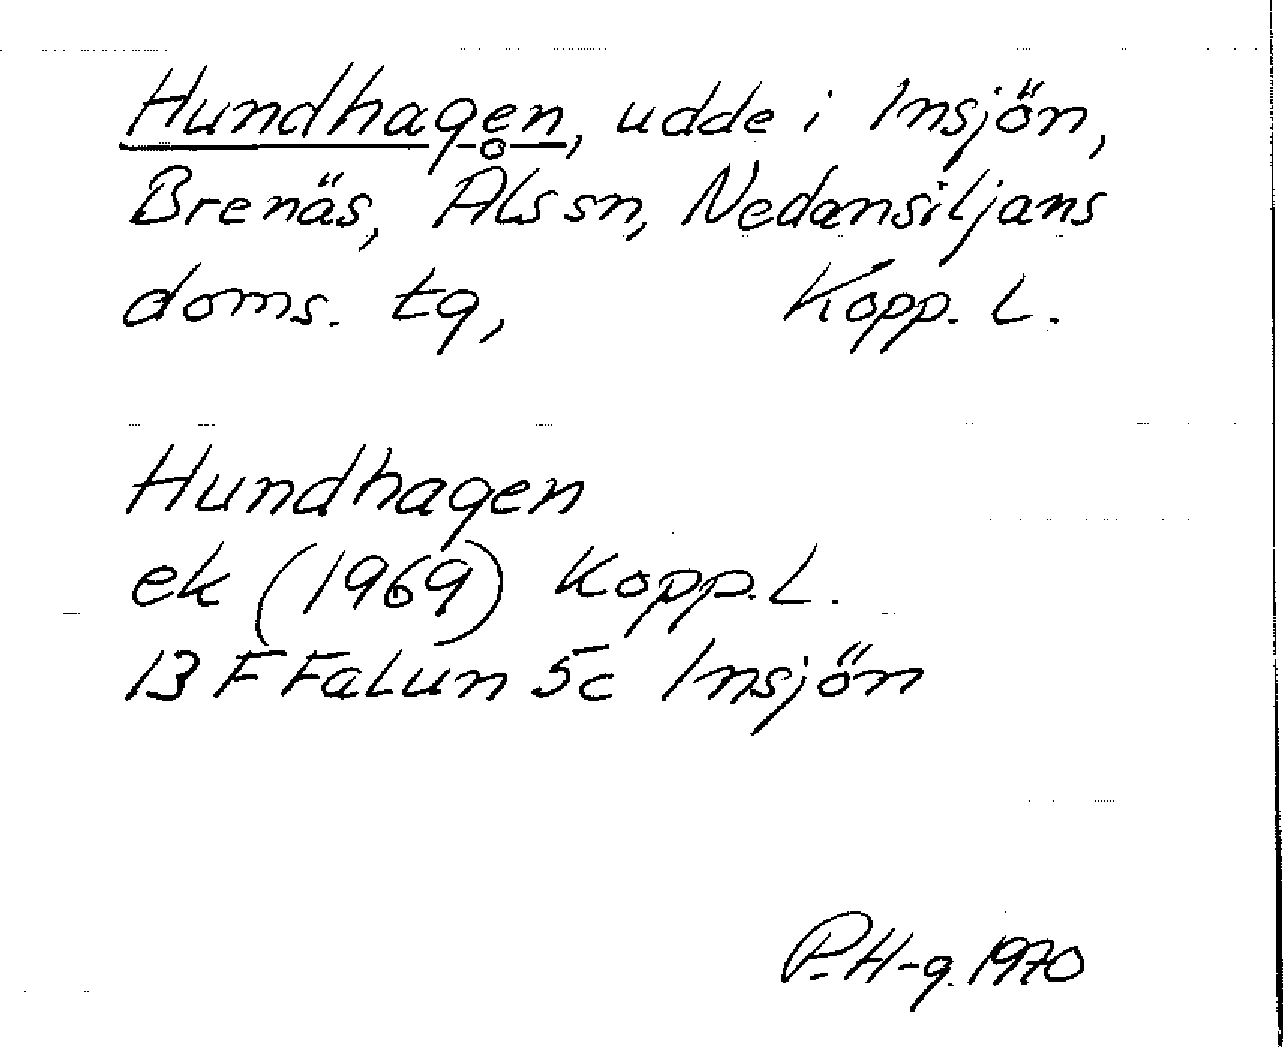 Hundhagen, udde i Insjön,
Brenäs, Åls sn, Nedansiljans
doms. tg, Kopp. L.
Hundhagen
ek (1969) Kopp. L.
13 F Falun 5c Insjön
P. H-g. 1970